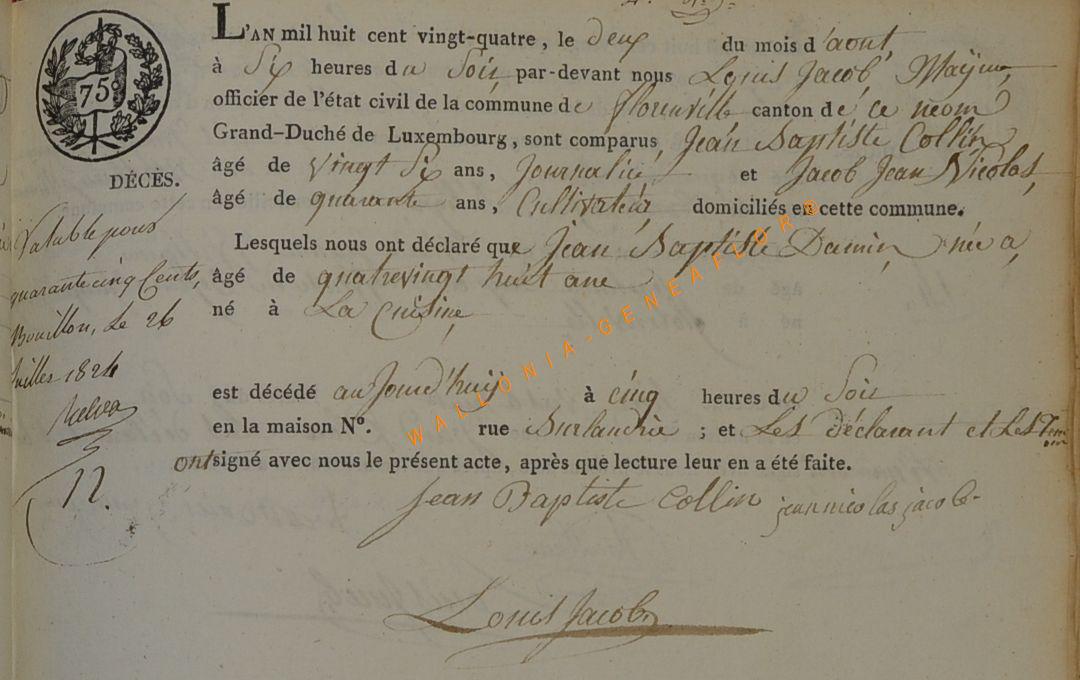 75ᶜ
DÉCÈS.
Valable pour
quarante cinq Cents,
Bouillon, Le 26
Juillet 1824
12
L'AN mil huit cent vingt-quatre, le deux du mois d'aout,
à Six heures du Soir par-devant nous Louis Jacob, Mayeur,
officier de l'état civil de la commune de florenville canton de ce neom
Grand-Duché de Luxembourg, sont comparus Jean Baptiste Collin
âgé de vingt Six ans, Journalié et Jacob Jean Nicolas,
âgé de quarante ans, Cultivateur domiciliés en cette commune.
Lesquels nous ont déclaré que Jean Baptiste Damin, née a
âgé de quatrevingt huit ans
né à La Cuisine,
est décédé au Jourd'huy à cinq heures du Soir
en la maison N°. rue ; et Les déclarant et Les
ont signé avec nous le présent acte, après que lecture leur en a été faite.
Jean Baptiste Collin jean nicolas jacob
Louis Jacob
WALLONIA-GENEAFLOR©